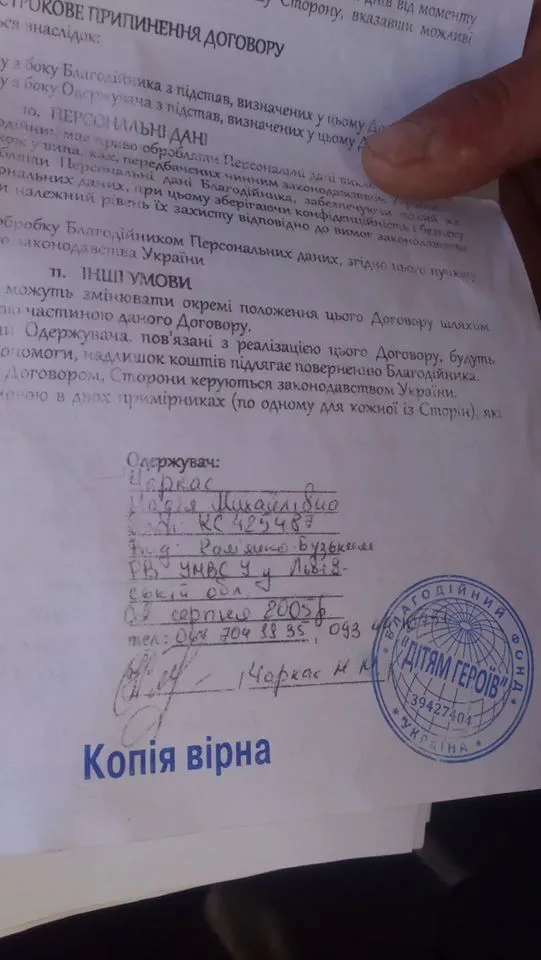 днів від моменту
Сторону, вказавши можливі
СТРОКОВЕ ПРИПИНЕННЯ ДОГОВОРУ
ося внаслідок:
у з боку Благодійника з підстав, визначених у цьому
у з боку Одержувача з підстав, визначених у цьому
10. ПЕРСОНАЛЬНІ ДАНІ
має право обробляти Персональні дані
передбачених чинним законодавством
Персональні дані Благодійника, забезпечуючи
ональних даних, при цьому зберігаючи конфіденційність і безпеку
и належний рівень їх захисту відповідно до вимог законодавства
обробку Благодійником Персональних даних, згідно цього пункту,
законодавства України
11. ІНШІ УМОВИ
можуть змінювати окремі положення цього Договору шляхом
частиною даного Договору.
Одержувача, пов'язані з реалізацією цього Договору, будуть
опомоги, надлишок коштів підлягає поверненню Благодійника.
Договором, Сторони керуються законодавством України.
мовою в двох примірниках (по одному для кожної із Сторін), які
Одержувач:
Чаркас
Надія Михайлівна
КС 425487
Вид. Кам'янко-Бузьким
РВ УМВС У у Львів-
ській обл.
серпня 2005р
тел: 093
Чаркас Н М
БЛАГОДІЙНИЙ ФОНД
"ДІТЯМ ГЕРОЇВ"
39427404
УКРАЇНА
Копія вірна